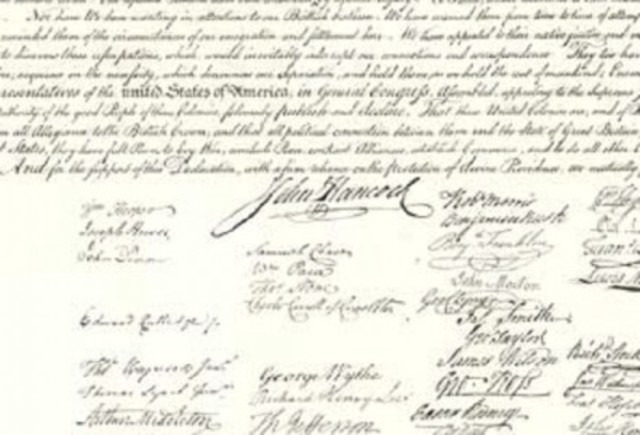 Nor have We been wanting in attentions to our British brethren. We have warned them from time to time of
them of the circumstances of our emigration and settlement here. We have appealed to their native justice and
to disavow these usurpations, which would inevitably interrupt our connections and correspondence. They too have
acquiesce in the necessity, which denounces our Separation, and hold them, as we hold the rest of mankind,
of the united States of America, in General Congress, Assembled, appealing to the Supreme
Authority of the good People of these Colonies, solemnly publish and declare, That these United Colonies are, and of
all Allegiance to the British Crown, and that all political connection between them and the State of Great
States, they have full Power to levy War, conclude Peace, contract Alliances, establish Commerce, and to do all other
And for the support of this Declaration, with a firm reliance on the Protection of divine Providence, we mutually
John Hancock
Wm Hooper
Joseph Hewes
John Penn
Edward Rutledge
Thos Heyward Junr
Thomas Lynch Junr
Arthur Middleton
Samuel Chase
Wm Paca
Thos Stone
Charles Carroll of Carrollton
George Wythe
Richard Henry Lee
Th Jefferson
Robt Morris
Benjamin Rush
Benj Franklin
John Morton
Geo Clymer
Jas Smith
Geo Taylor
James Wilson
Geo Ross
Caesar Rodney